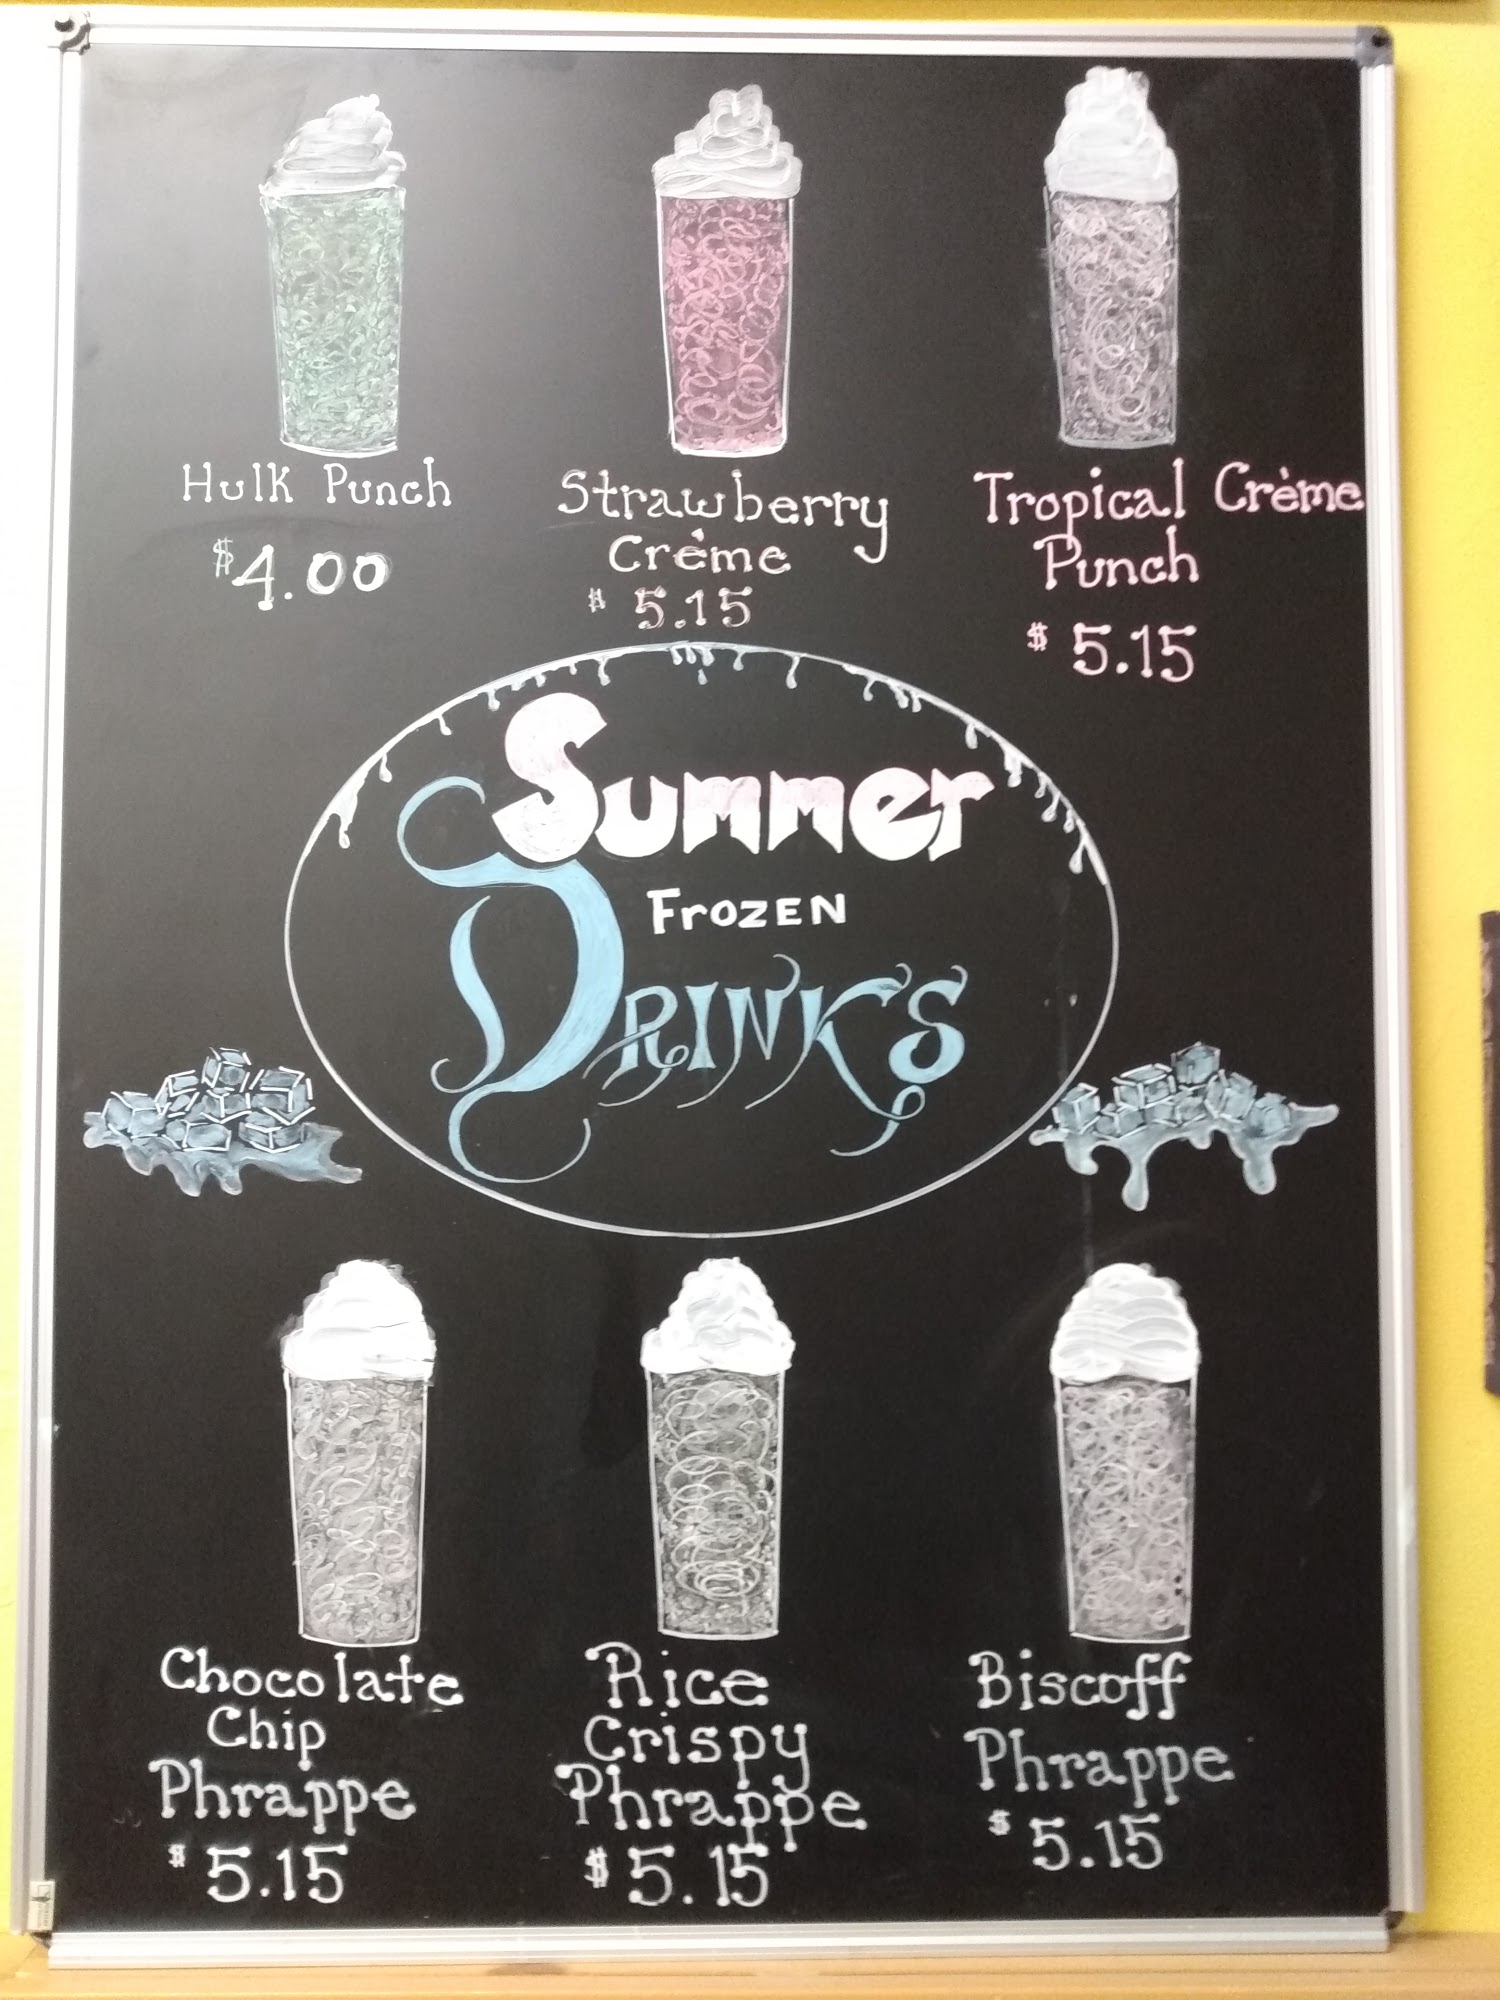 Hulk Punch
$4.00
Strawberry
Crème
$ 5.15
Tropical Crème
Punch
$ 5.15
Summer
FrOZEN
DRINKS
Chocolate
Chip
Phrappe
$ 5.15
Rice
Crispy
Phrappe
$ 5.15
Biscoff
Phrappe
$ 5.15